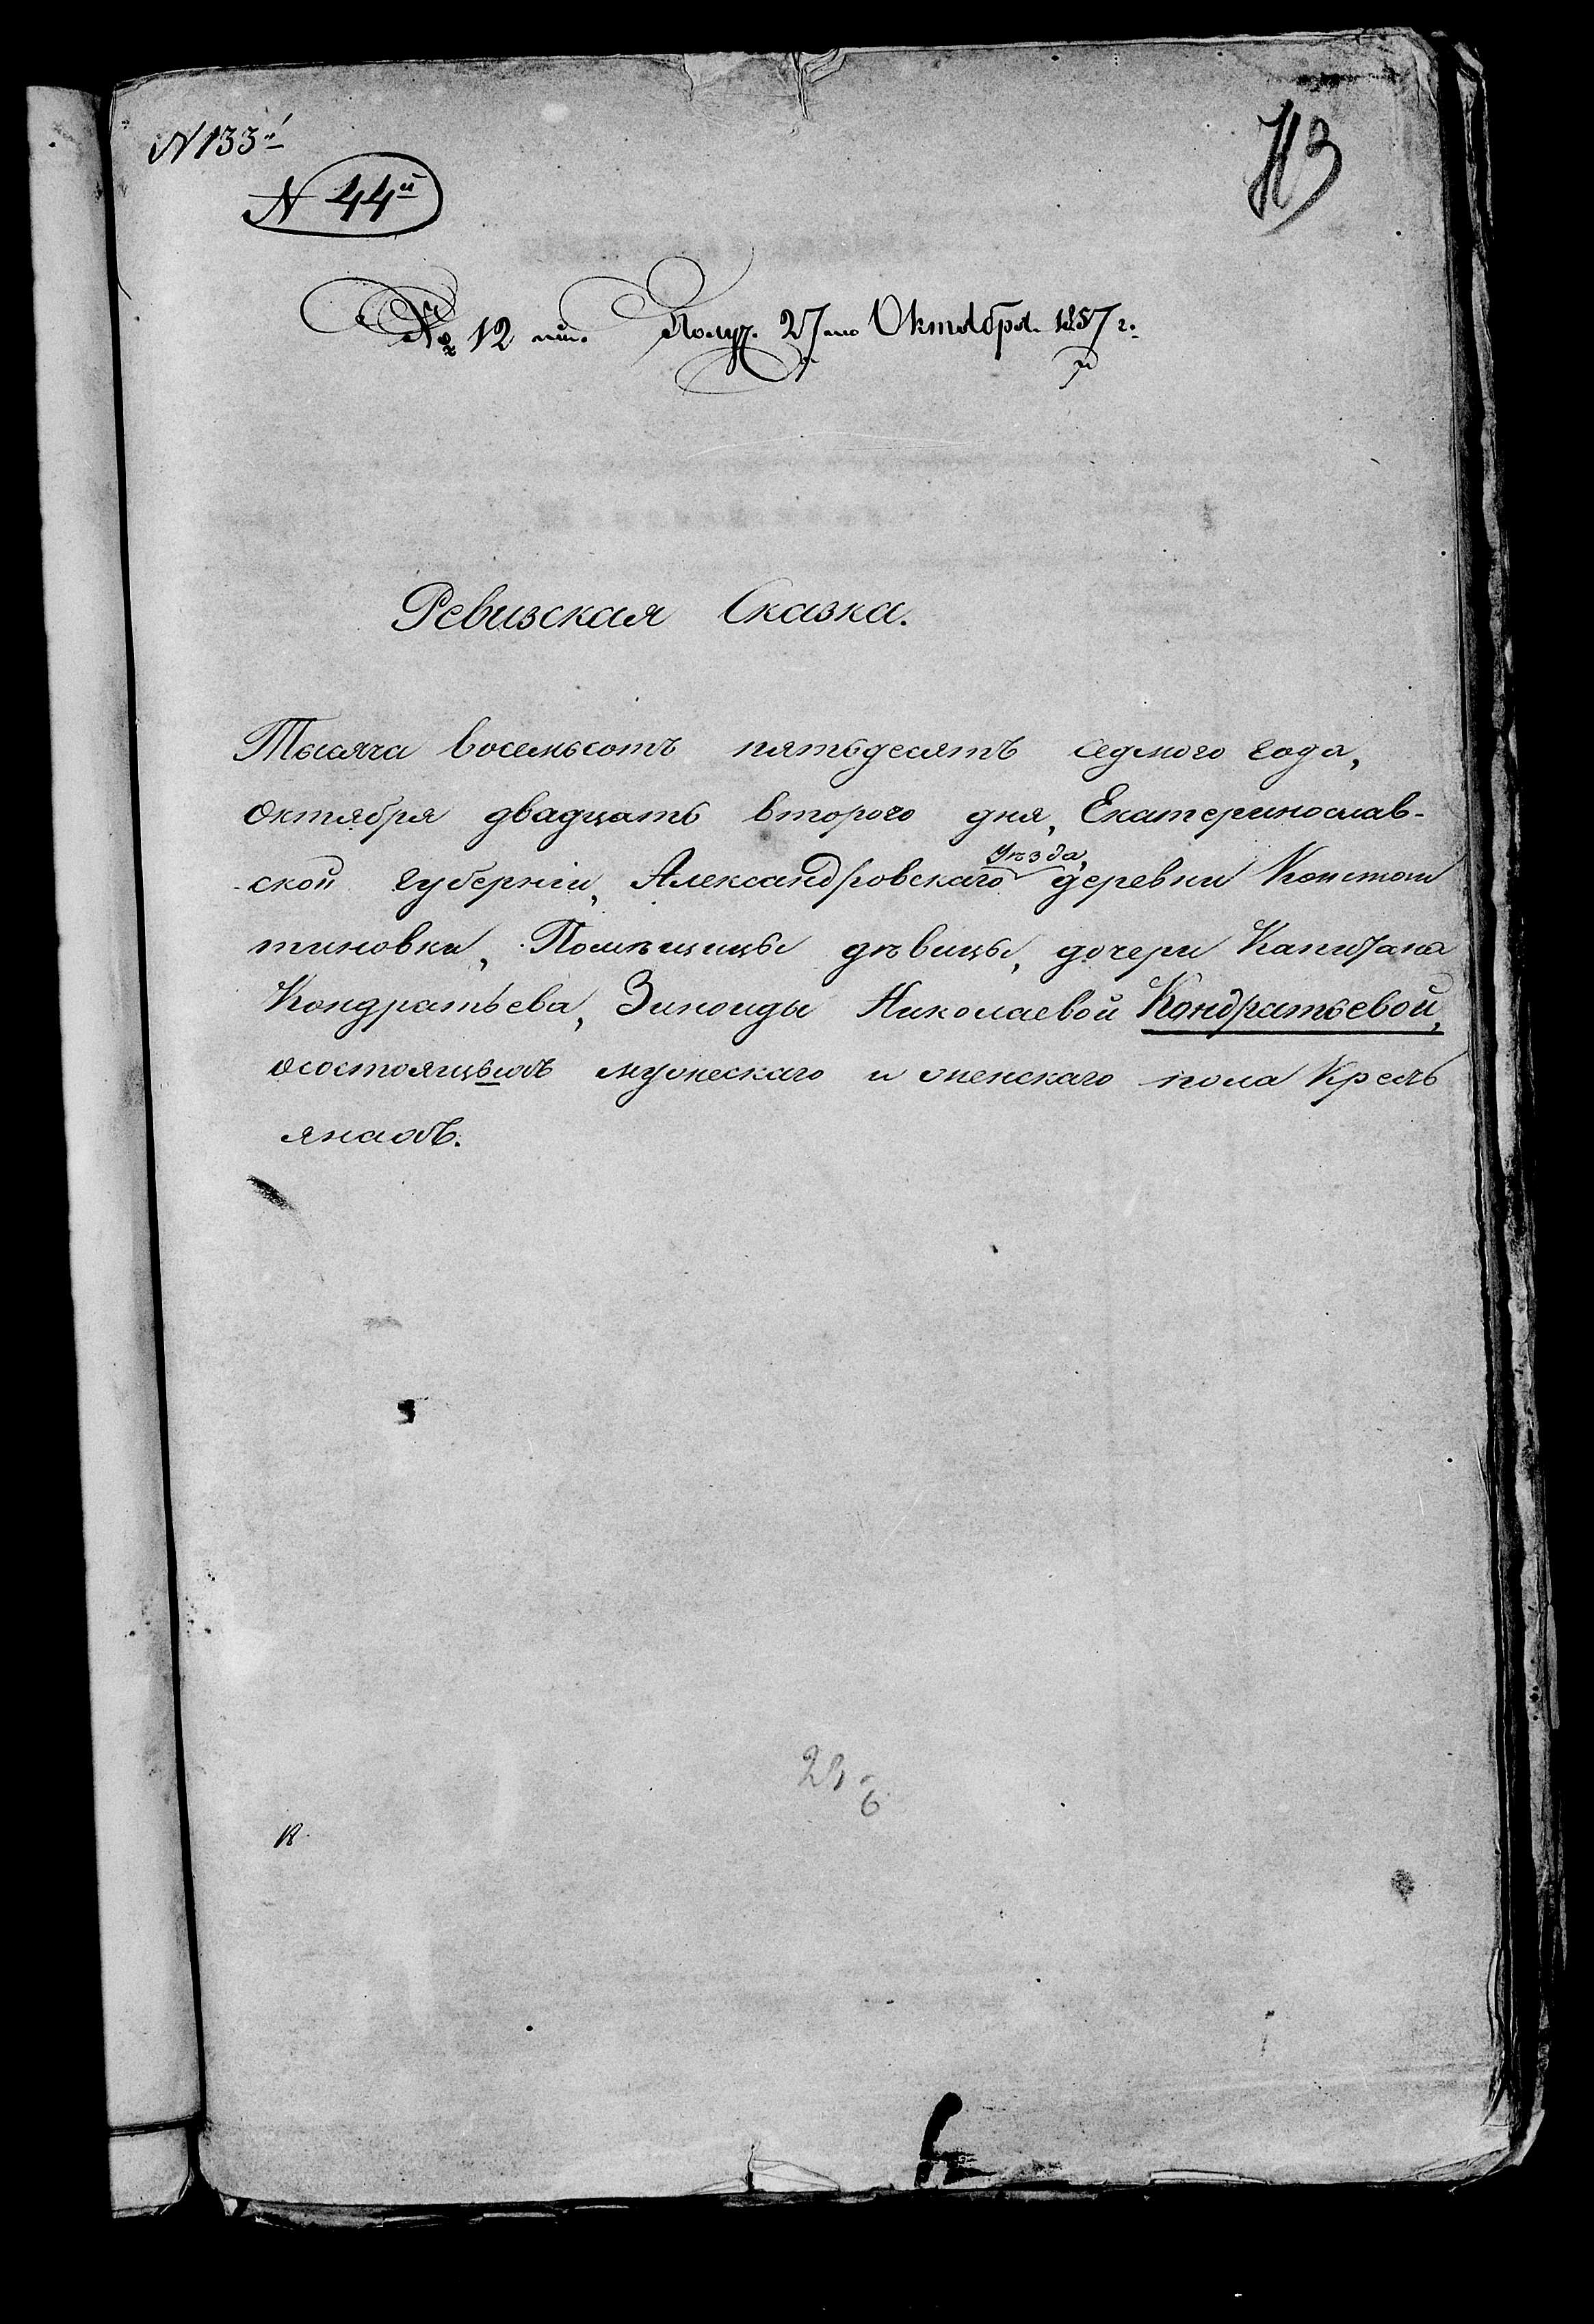 N 133й
113
N 44й
№ 12й. Получ. 27го Октября 1857 г.
Ревизская Сказка.
Тысяча восемьсотъ пятьдесятъ седмого года,
Октября двадцать второго дня, Екатеринослав-
ской губерніи, Александровскаго уѣзда, деревни Констан
тиновки, Помѣщицы дѣвицы, дочери Капитана
Кондратьева, Зинаиды Николаевой Кондратьевой,
осостоящыхъ мужескаго и женскаго пола Кресть
янахъ.